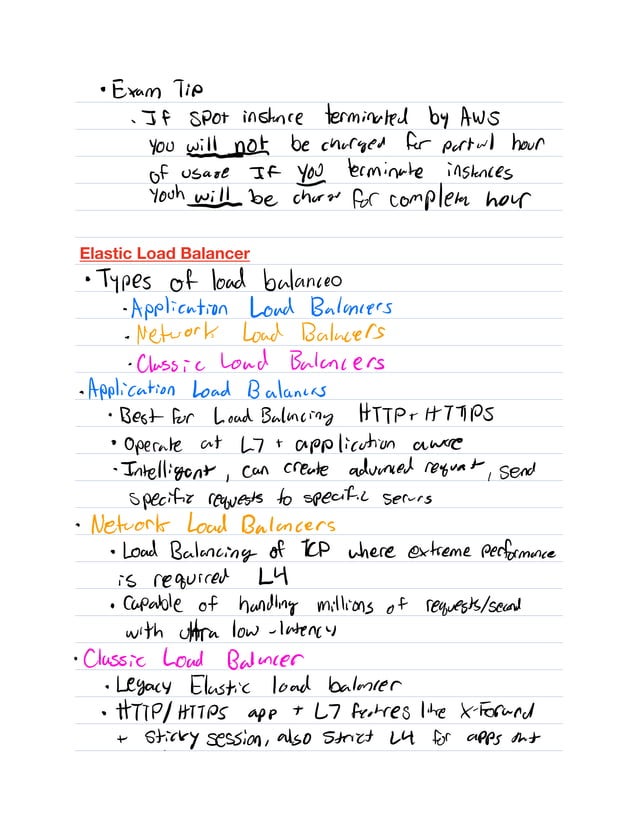 • Exam Tip
• If spot instance terminated by AWS
you will not be charged for partial hour
of usage If you terminate instances
youh will be charge for complete hour
Elastic Load Balancer
• Types of load balanceo
• Application Load Balancers
• Network Load Balancers
• Classic Load Balancers
• Application Load Balancers
• Best for Load Balancing HTTP + HTTPS
• Operate at L7 + application aware
• Intelligent, can create advanced request, send
specific requests to specific servers
• Network Load Balancers
• Load Balancing of TCP where extreme performance
is required L4
• Capable of handling millions of requests/second
with ultra low-latency
• Classic Load Balancer
• Legacy Elastic load balancer
• HTTP/HTTPS app + L7 features like X-Forward
+ sticky session, also strict L4 for apps that